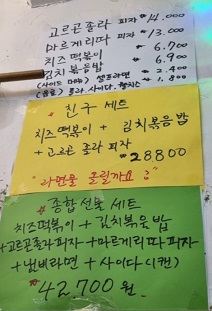 고르곤졸라 피자 ₩14.000
마르게리따 피자 ₩13.000
치즈 떡볶이 6.700
김치볶음밥 6.900
2.400
콜라.사이다. 1.800
친구 세트
치즈 떡볶이 + 김치볶음밥
+ 고르곤졸라 피자
₩28800
"라면물 올릴까요?"
종합선물 세트
치즈떡볶이 + 김치볶음밥
+고르곤졸라피자 + 마르게리따피자
+ 냄비라면 + 사이다(1캔)
42.700원.